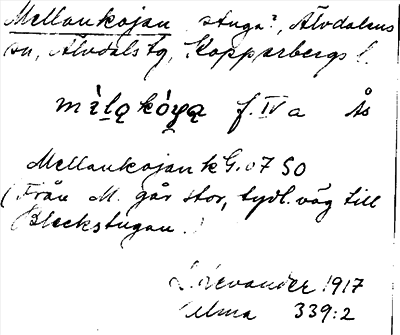 Mellankojan stuga?, Älvdalens
sn, Älvdals tg, Kopparbergs l.
mɛ̀ląkóyą f. IV a Ås
Mellankojan k G. 07 SO
(Från M. går stor, tydl. väg till
Bleckstugan.)
L. Levander 1917
Ulma 339:2